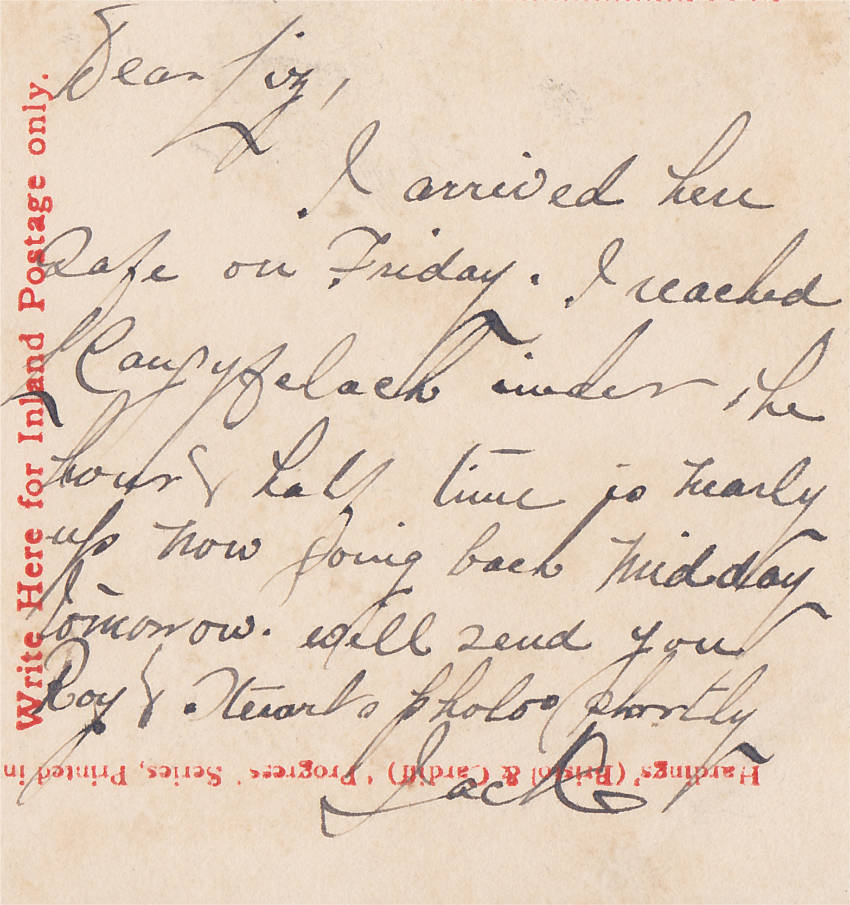 Dear Liz,
I arrived here
safe on Friday. I reached
Llangyfelach under the
hour & half time is nearly
up now Going back Midday
tomorrow. will send you
Roy & Stuarts photos shortly
Jack
Write Here for Inland Postage only.
Hardings' (Bristol & Cardiff) 'Progress' Series, Printed in